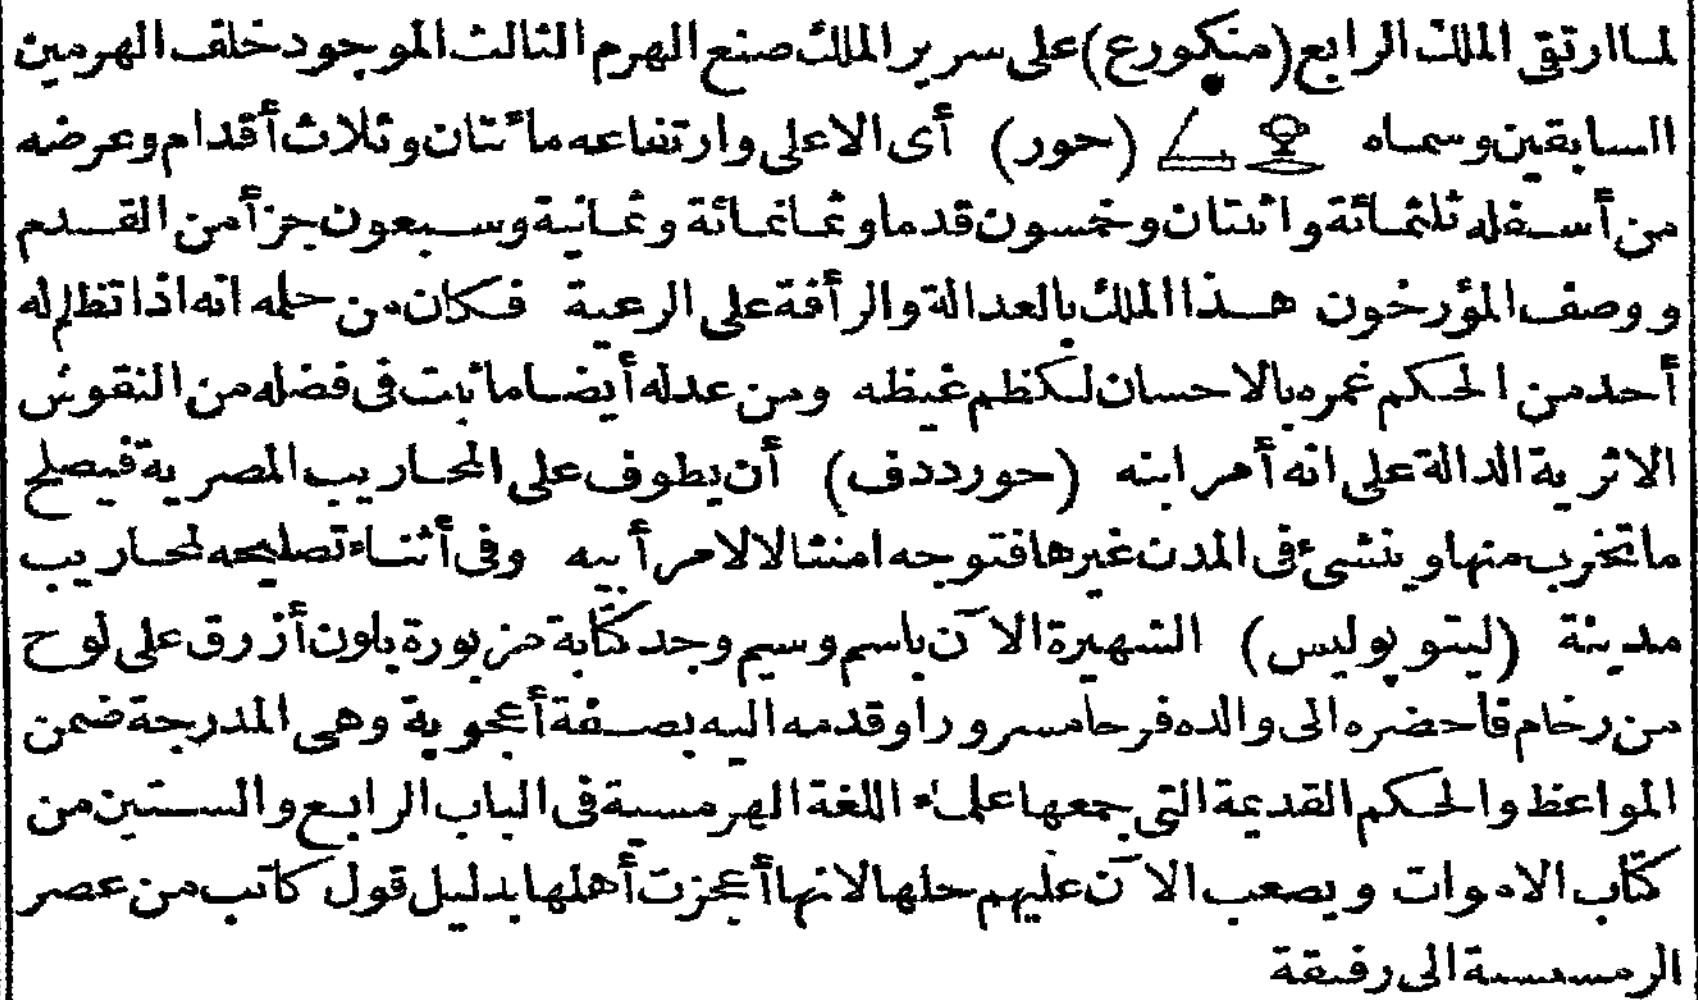 لما ارتقى الملك الرابع (منكورع) على سرير الملك صنع الهرم الثالث الموجود خلف الهرمين
السابقين وسماه (حور) أى الاعلى وارتفاعه مائتان وثلاث أقدام وعرضه
من أسفله ثلثمائة واثنتان وخمسون قدما وثمانمائة وثمانية وسبعون جزأ من القدم
ووصف المؤرخون هذا الملك بالعدالة والرأفة على الرعية فكان من حلمه انه اذا تظلم له
أحد من الحكم غمره بالاحسان لكظم غيظه ومن عدله أيضا ما ثبت فى فضله من النقوش
الاثرية الدالة على انه أمر ابنه (حورددف) أن يطوف على المحاريب المصرية فيصلح
ما تخرب منها وينشئ فى المدن غيرها فتوجه امتثالا لامر أبيه وفى أثناء تصليحه لمحاريب
مدينة (ليتوپوليس) الشهيرة الآن باسم وسيم وجد كتابة مزبورة بلون أزرق على لوح
من رخام فأحضره الى والده فرحا مسرورا وقدمه اليه بصفة أعجوبة وهى المدرجة ضمن
المواعظ والحكم القديمة التى جمعها علماء اللغة الهرمسية فى الباب الرابع والستين من
كتاب الاموات ويصعب الآن عليهم حلها لانها أعجزت أهلها بدليل قول كاتب من عصر
الرمسيسية الى رفيقة